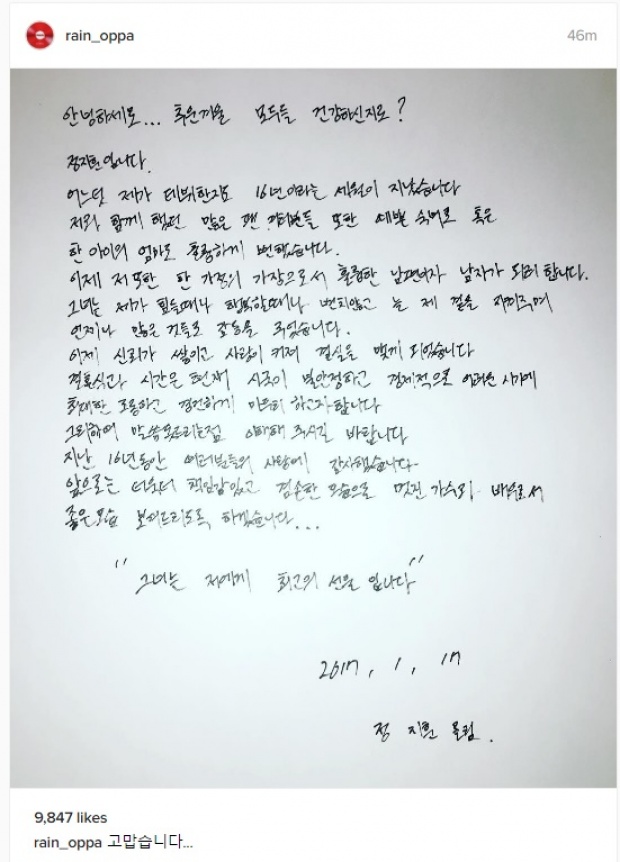 rain_oppa
46m
안녕하세요... 추운겨울 모두들 건강하신지요?
정지훈입니다.
어느덧 제가 데뷔한지도 16년이라는 세월이 지났습니다
저와 함께 했던 많은 팬 여러분들 또한 예쁜 숙녀로 혹은
한 아이의 엄마로 훌륭하게 변했습니다.
이제 저 또한 한 가정의 가장으로서 훌륭한 남편이자 남자가 되려 합니다.
그녀는 제가 힘들때나 행복할때나 변치않고 늘 제 곁을 지켜주며
언제나 많은 것들로 감동을 주었습니다.
이제 신뢰가 쌓이고 사랑이 커져 결실을 맺게 되었습니다
결혼식과 시간은 현재 시국이 불안정하고 경제적으로 어려운 시기에
최대한 조용하고 경건하게 마무리 하고자합니다
그리하여 말씀못드리는점 이해해 주시길 바랍니다
지난 16년동안 여러분들의 사랑에 감사했습니다.
앞으로는 더욱더 책임감있고 겸손한 모습으로 멋진 가수와 배우로서
좋은모습 보여드리도록 하겠습니다...
" 그녀는 저에게 최고의 선물 입니다 "
2017, 1, 17
정 지훈 올림.
9,847 likes
rain_oppa 고맙습니다...